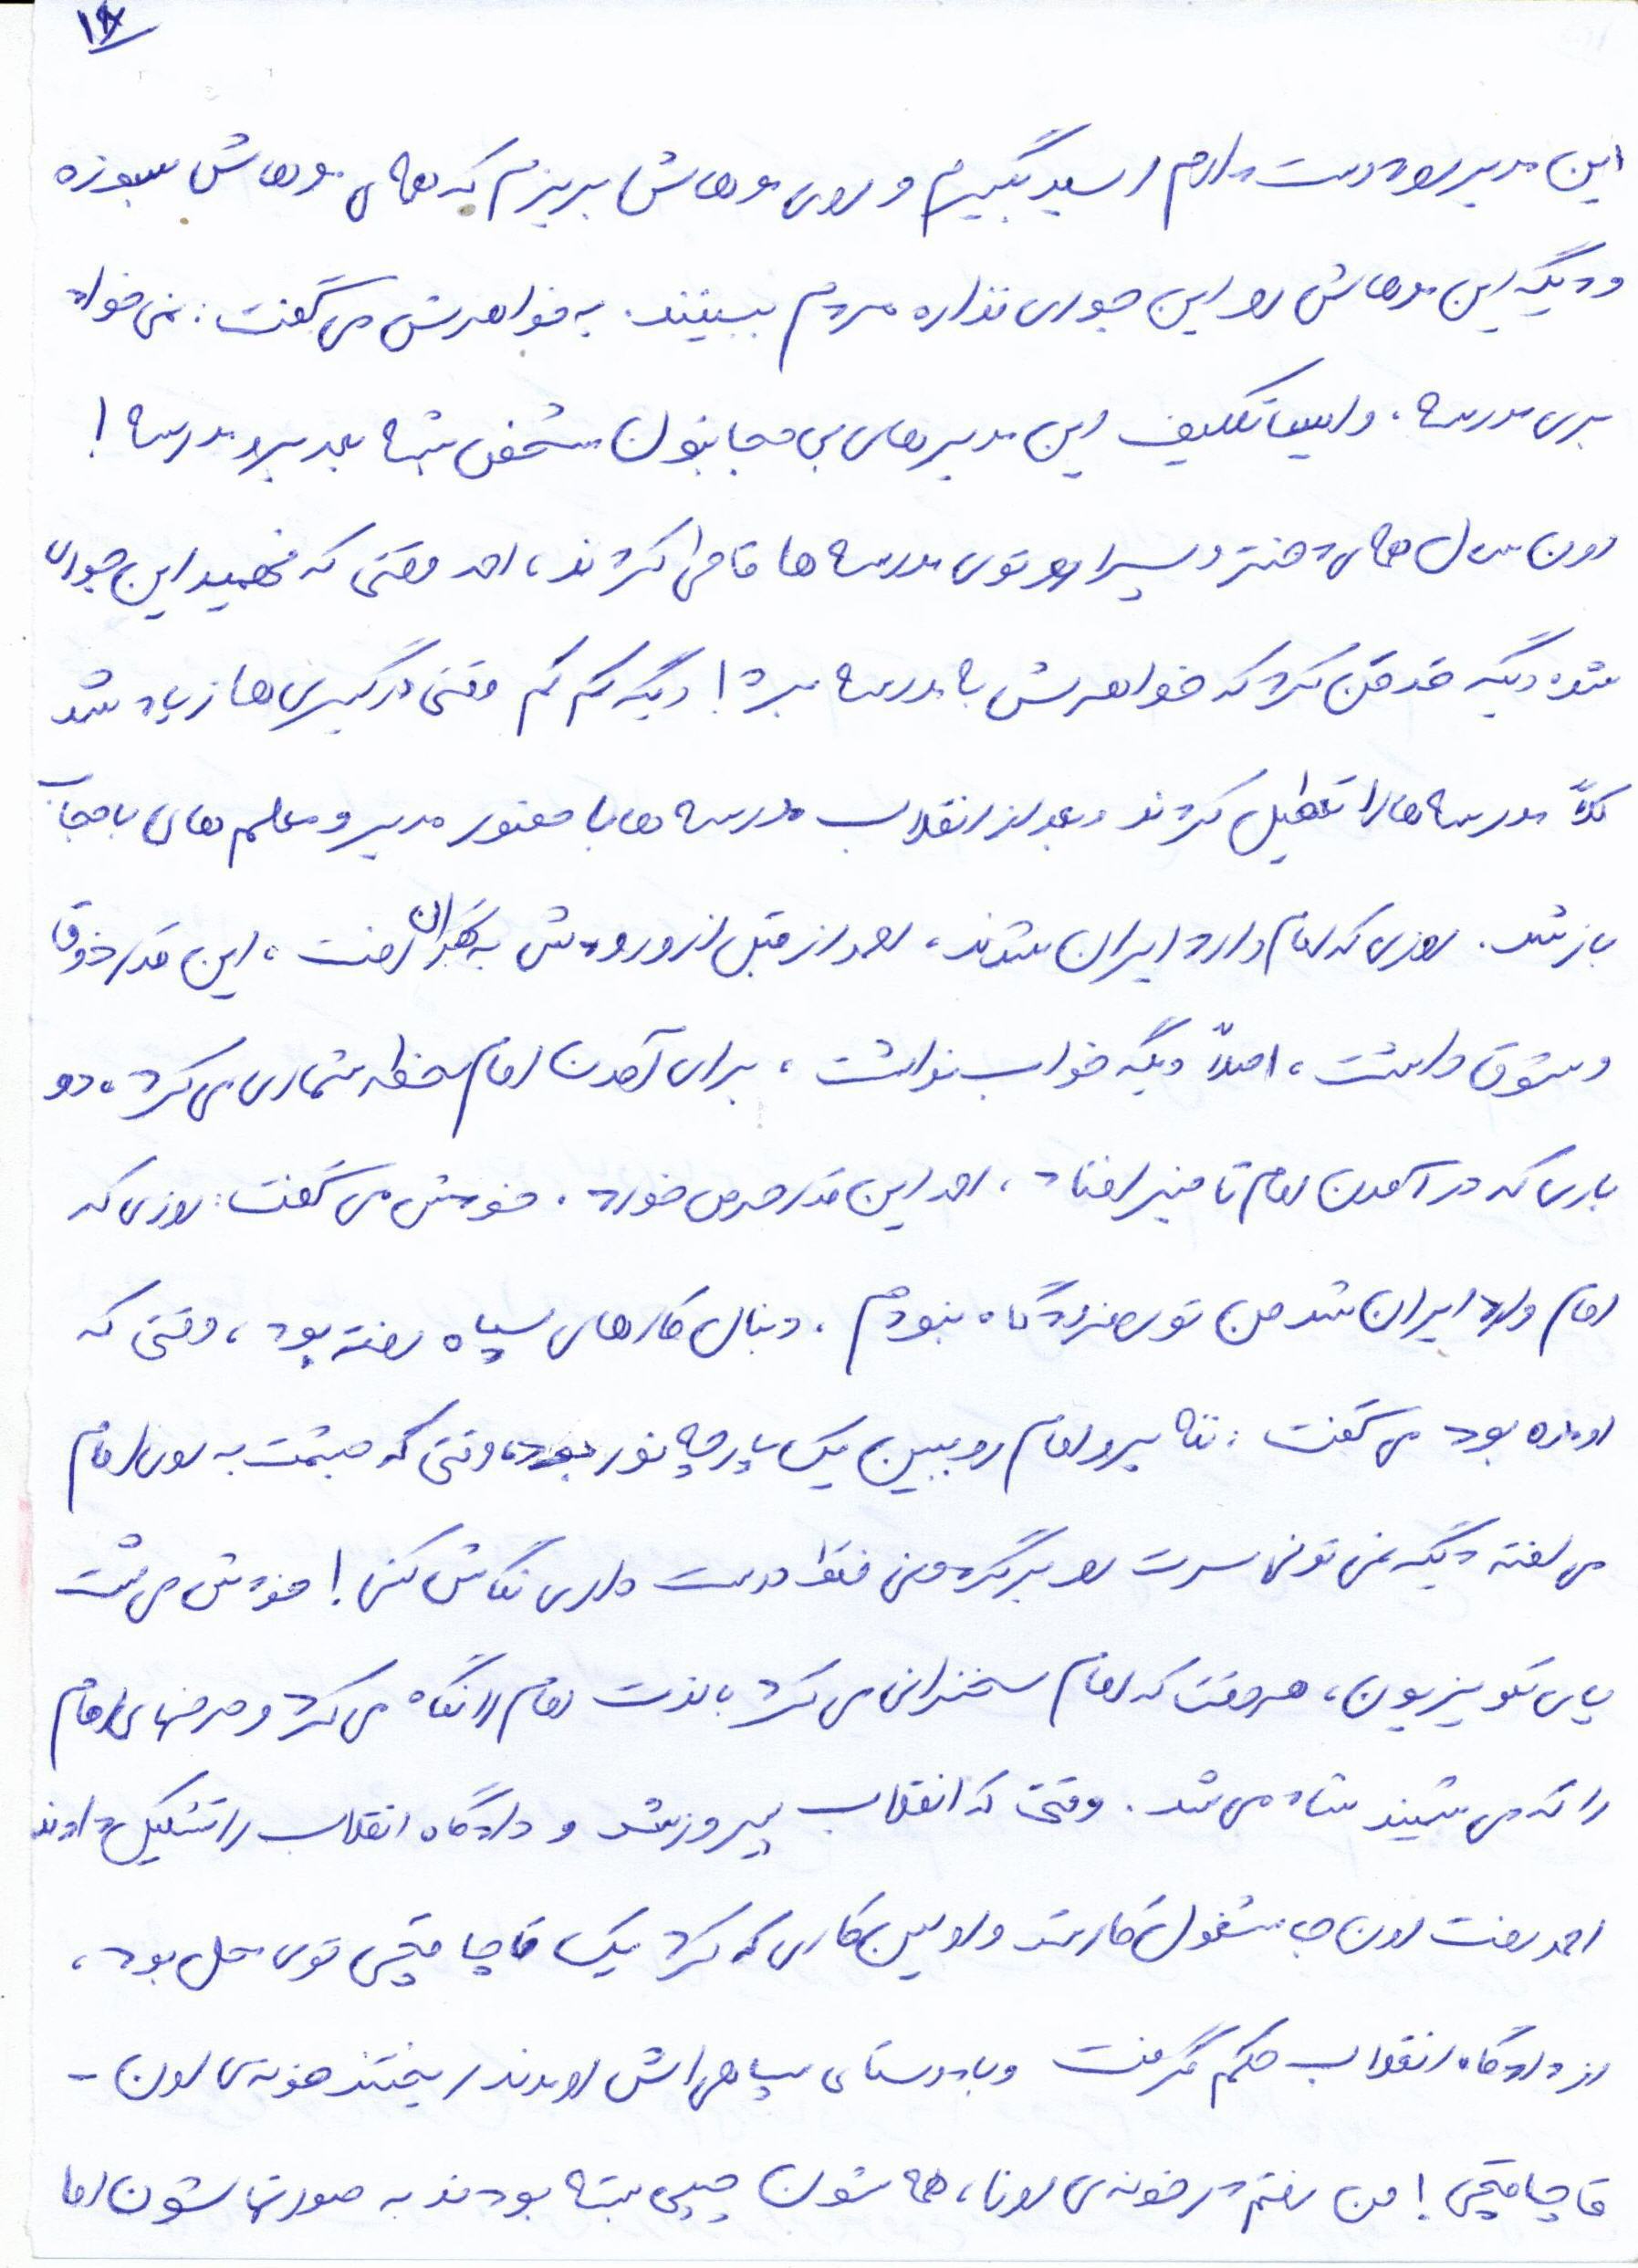 ۱۸
این مدیر رو دوست دارم اسید بگیرم و روی موهاش بریزم که همه‌ی موهاش بسوزه
و دیگه این موهاش رو این جوری نذاره مردم ببینند. به خواهرش می گفت: نمی خواد
بری مدرسه، وایسا تکلیف این مدیرهای بی حجابتون مشخص بشه بعد برو مدرسه!
اون سال های دختر و پسرا رو توی مدرسه ها قاطی کردند، احمد وقتی که فهمید این جوری
شده دیگه قدقن کرد که خواهرش با مدرسه برد! دیگه کم کم وقتی درگیری ها زیاد شد
کلاً مدرسه ها را تعطیل کردند و بعد از انقلاب مدرسه ها با حضور مدیر و معلم های با حجاب
باز شد. روزی که امام وارد ایران شدند، احمد از قبل از ورودش به تهران رفت، این قدر ذوق
و شوق داشت، اصلاً دیگه خواب نداشت، برای آمدن امام لحظه شماری می کرد، دو
باری که در آمدن امام تاخیر افتاد، احمد این قدر حرص خورد. خودش می گفت: روزی که
امام وارد ایران شد من توی فرودگاه نبودم. دنبال کارهای سپاه رفته بود، وقتی که
اومده بود می گفت: ننه برو امام رو ببین یک پارچه نور بود، وقتی که چشمت به روی امام
می افته دیگه نمی تونی سرت رو برگردونی فقط دوست داری نگاش کنی! خودش می نشست
پای تلویزیون، هر وقت که امام سخنرانی می کرد با لذت امام را نگاه می کرد و حرفهای امام
را که می شنید شاد می شد. وقتی که انقلاب پیروز شد و دادگاه انقلاب را تشکیل دادند
احمد رفت اون جا مشغول کار شد و اولین کاری که کرد یک قاچاقچی توی محل بود،
از دادگاه انقلاب حکم گرفت و با دوستای سپاهی اش اومدند ریختند خونه‌ی اون -
قاچاقچی! من رفتم در خونه‌ی اونا، همه شون چپی بسته بودند به صورتهاشون اما